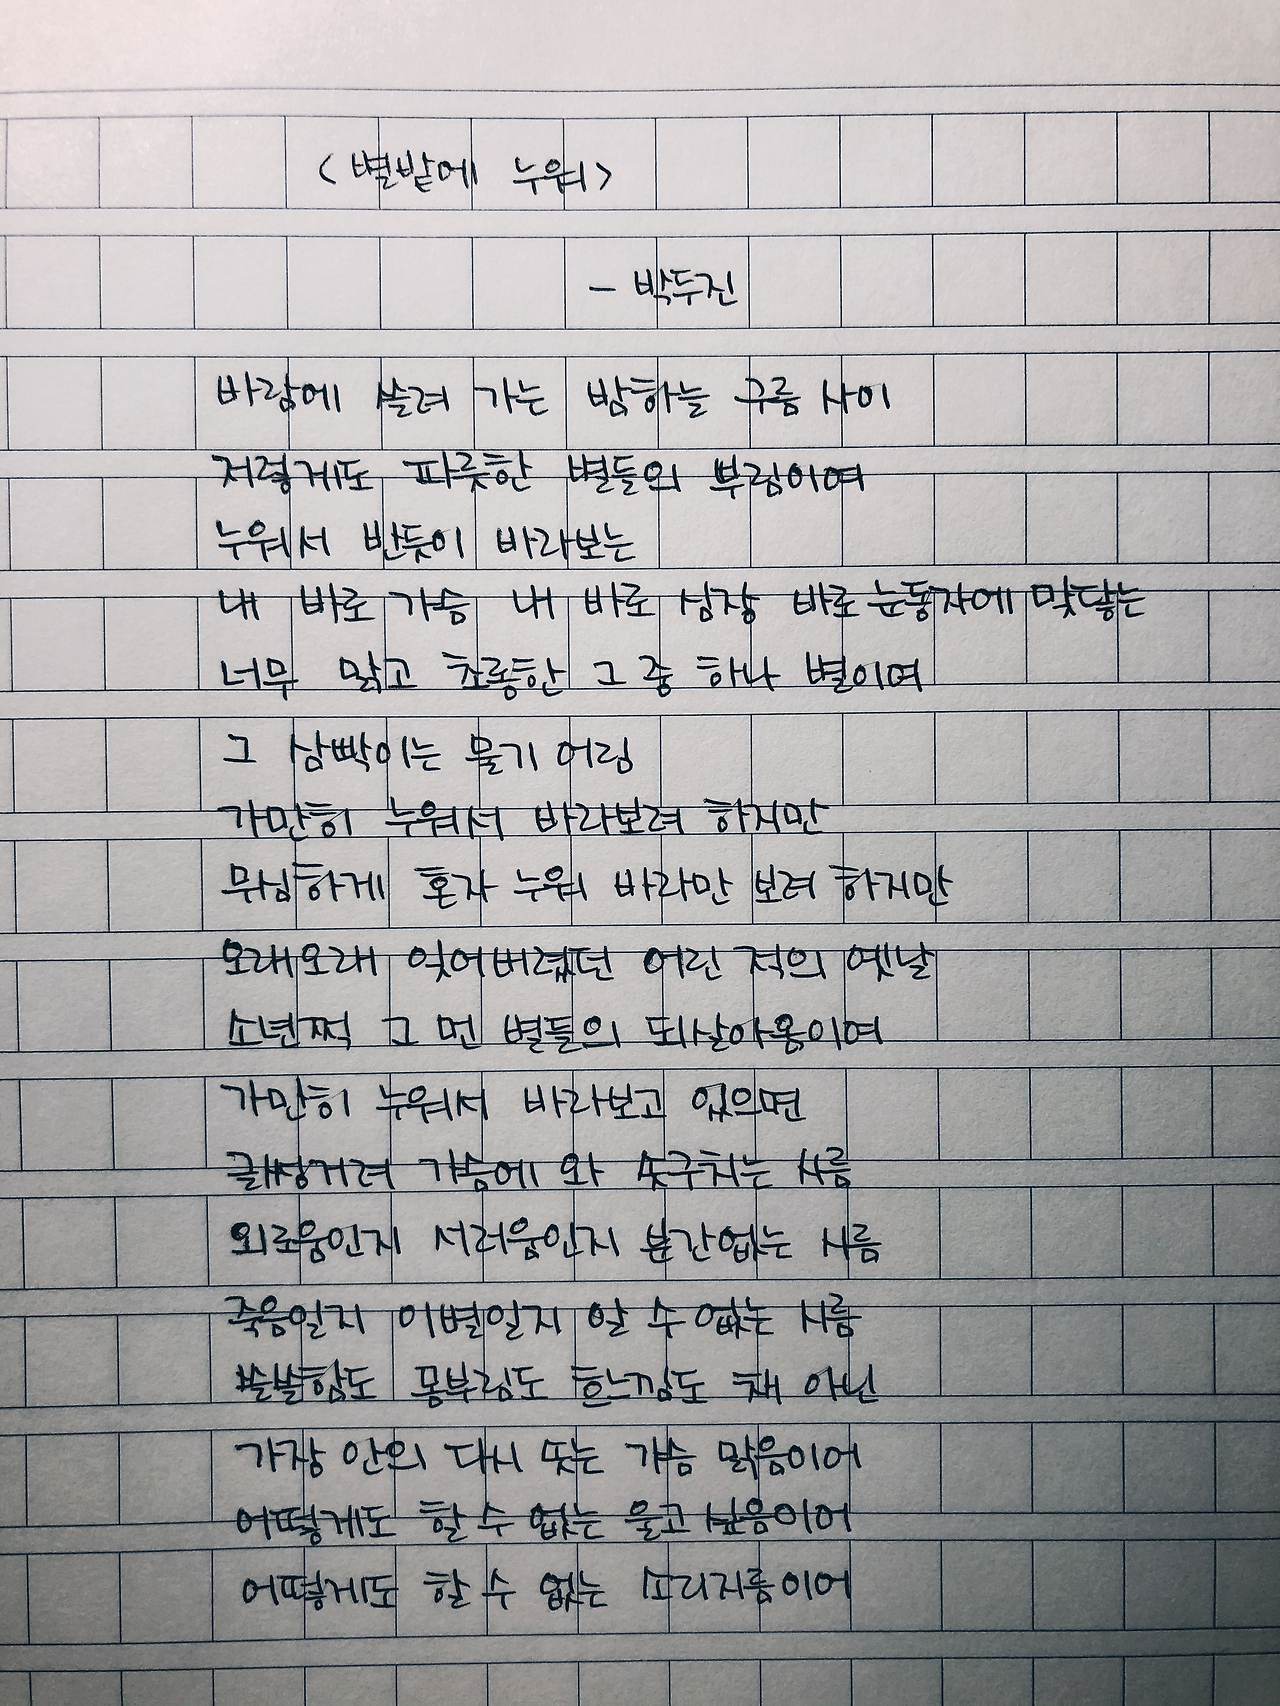 <별밭에 누워>
- 박두진
바람에 쓸려 가는 밤하늘 구름 사이
저렇게도 파릇한 별들의 뿌림이여
누워서 반듯이 바라보는
내 바로 가슴 내 바로 심장 바로 눈동자에 맞닿는
너무 맑고 초롱한 그 중 하나 별이여
그 삼빡이는 물기 어림
가만히 누워서 바라보려 하지만
무심하게 혼자 누워 바라만 보려 하지만
오래오래 잊어버렸던 어린 적의 옛날
소년쩍 그 먼 별들의 되살아옴이여
가만히 누워서 바라보고 있으면
글썽거려 가슴에 와 솟구치는 시름
외로움인지 서러움인지 분간없는 시름
죽음일지 이별일지 알 수 없는 시름
쓸쓸함도 몸부림도 흐느낌도 채 아닌
가장 안의 다시 솟는 가슴 맑음이어
어떻게도 할 수 없는 울고 싶음이어
어떻게도 할 수 없는 소리지름이어